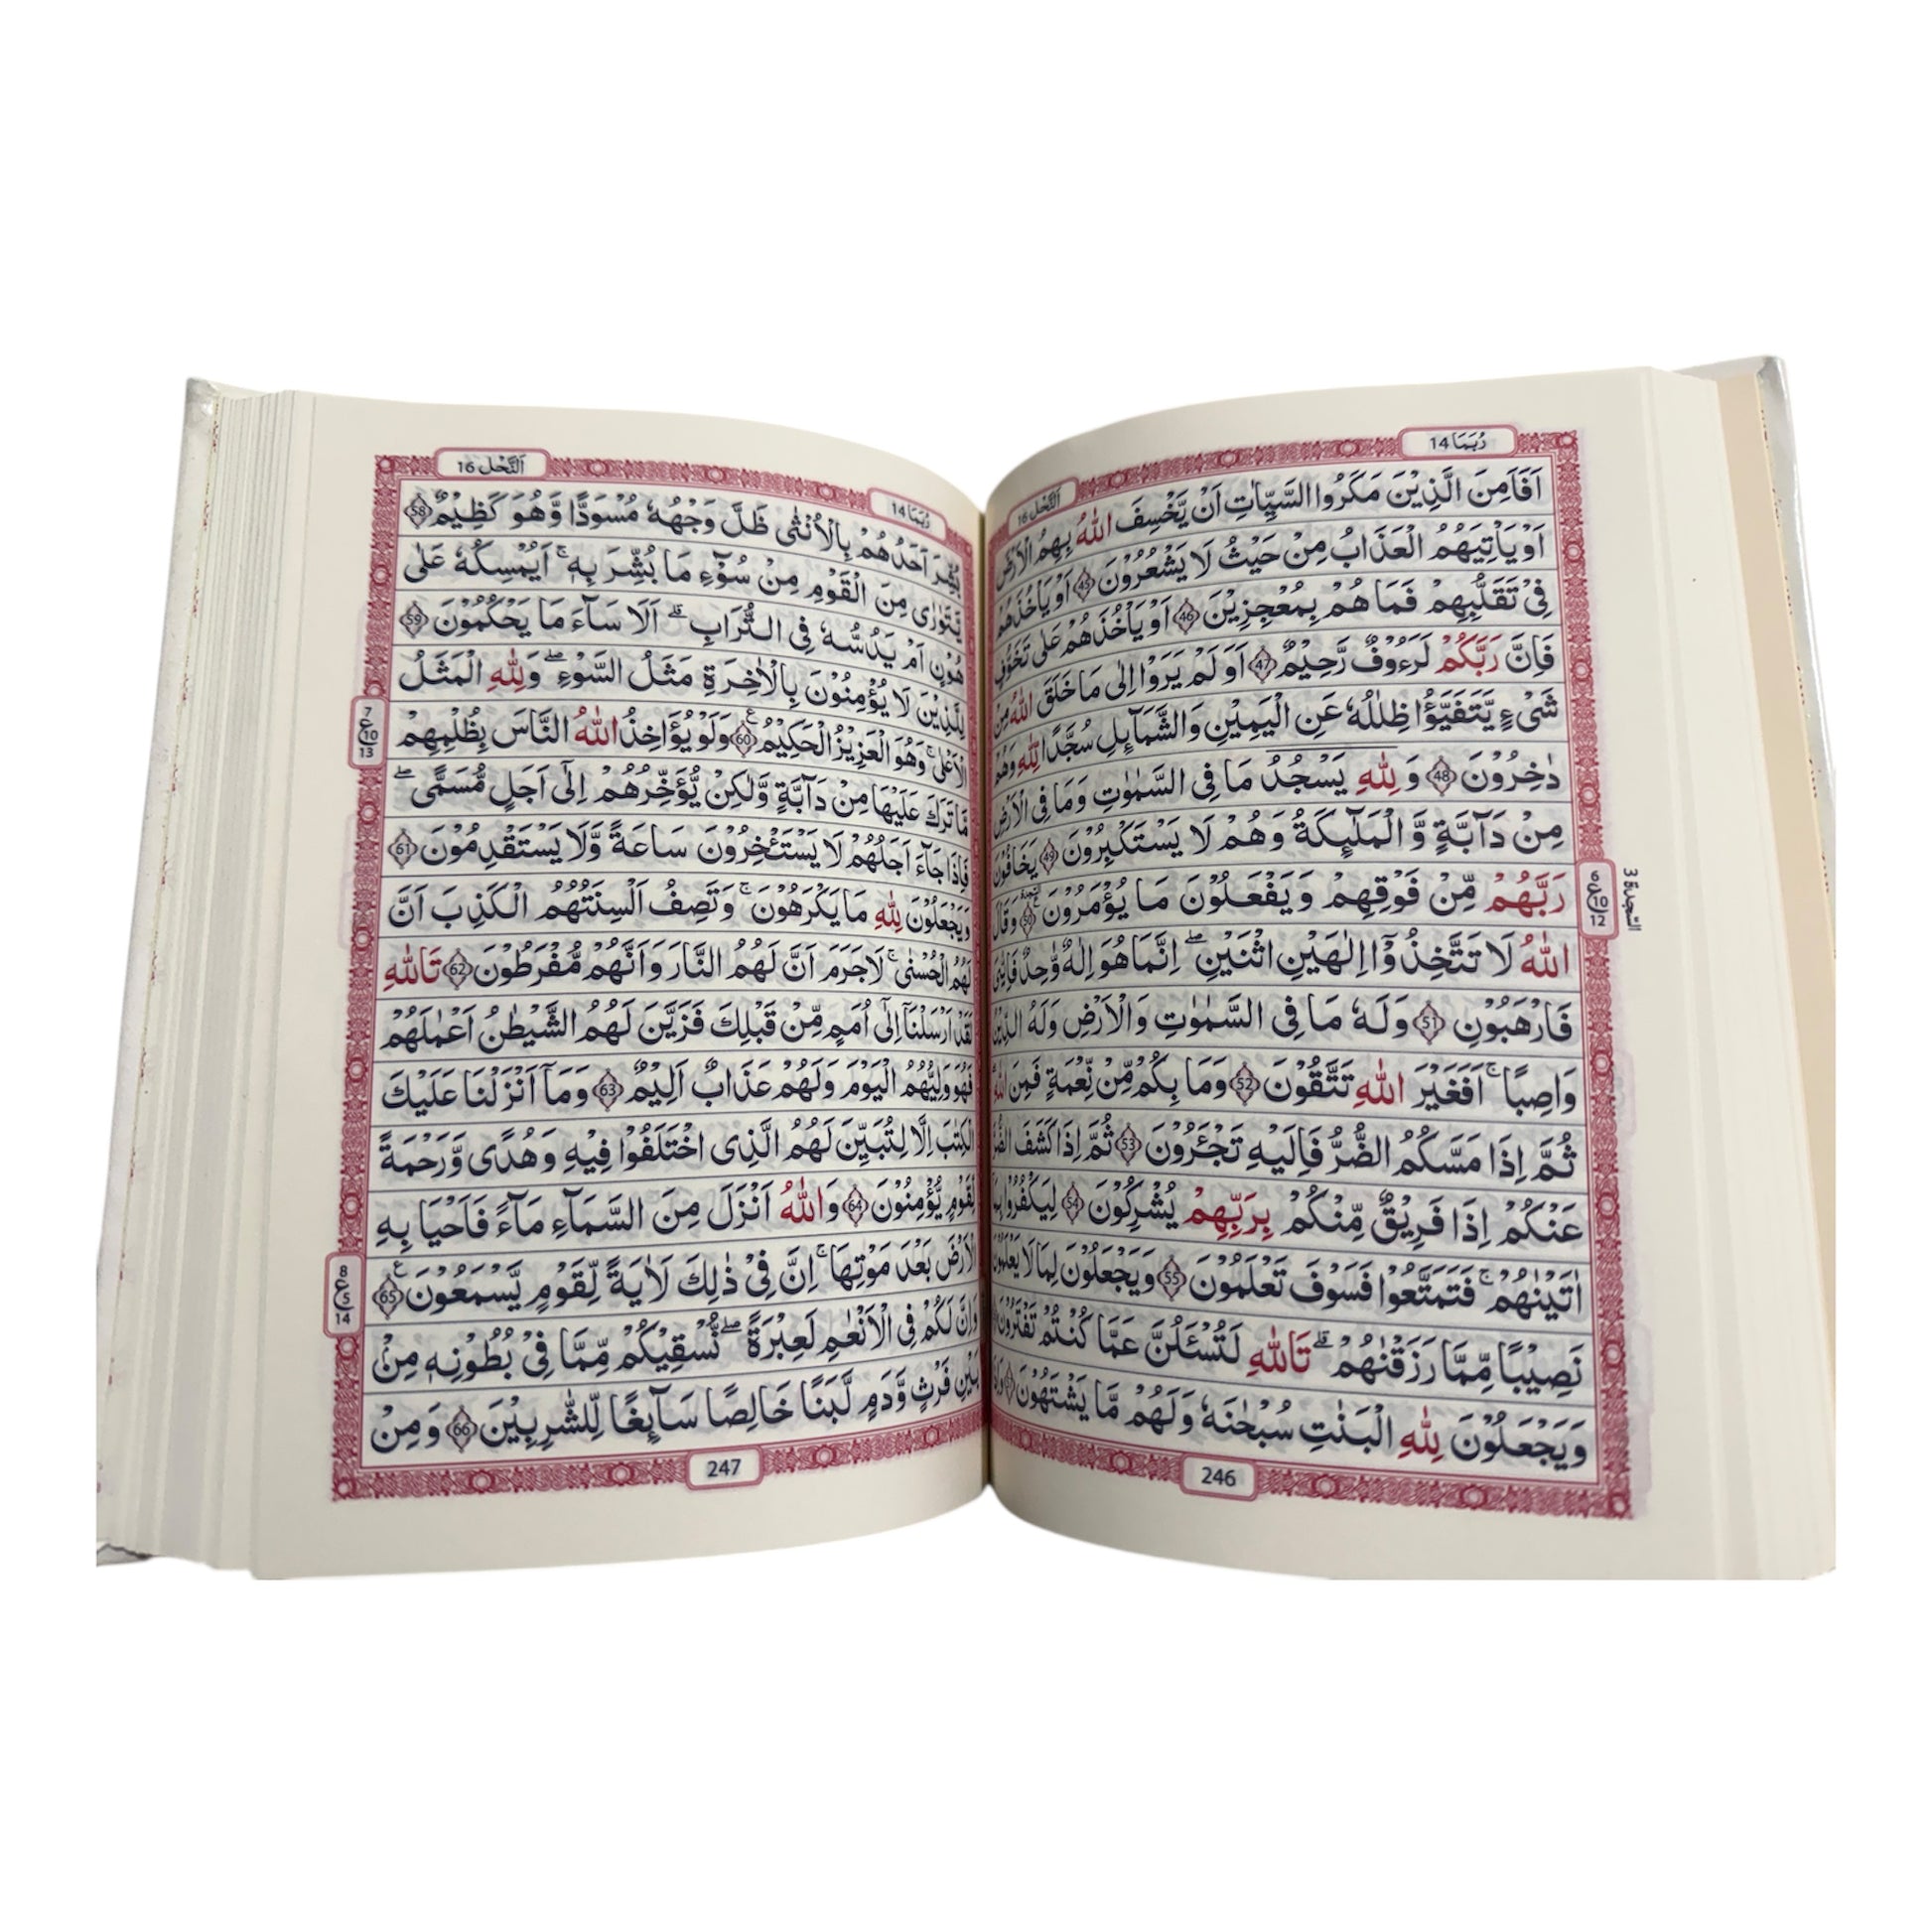 رُبَمَا 14
اَلنَّحْل 16
اَفَاَمِنَ الَّذِيْنَ مَكَرُوا السَّيِّاٰتِ اَنْ يَّخْسِفَ اللّٰهُ بِهِمُ الْاَرْضَ
اَوْ يَاْتِيَهُمُ الْعَذَابُ مِنْ حَيْثُ لَا يَشْعُرُوْنَ 45 اَوْ يَاْخُذَهُمْ
فِىْ تَقَلُّبِهِمْ فَمَا هُمْ بِمُعْجِزِيْنَ 46 اَوْ يَاْخُذَهُمْ عَلٰى تَخَوُّفٍ
فَاِنَّ رَبَّكُمْ لَرَءُوْفٌ رَّحِيْمٌ 47 اَوَلَمْ يَرَوْا اِلٰى مَا خَلَقَ اللّٰهُ مِنْ
شَىْءٍ يَّتَفَيَّؤُا ظِلٰلُهٗ عَنِ الْيَمِيْنِ وَالشَّمَآئِلِ سُجَّدًا لِّلّٰهِ وَهُمْ
دٰخِرُوْنَ 48 وَلِلّٰهِ يَسْجُدُ مَا فِى السَّمٰوٰتِ وَمَا فِى الْاَرْضِ
مِنْ دَآبَّةٍ وَّالْمَلٰٓئِكَةُ وَهُمْ لَا يَسْتَكْبِرُوْنَ 49 يَخَافُوْنَ
رَبَّهُمْ مِّنْ فَوْقِهِمْ وَيَفْعَلُوْنَ مَا يُؤْمَرُوْنَ 50 وَقَالَ
اللّٰهُ لَا تَتَّخِذُوْٓا اِلٰهَيْنِ اثْنَيْنِ ۖ اِنَّمَا هُوَ اِلٰهٌ وَّاحِدٌ فَاِيَّاىَ
فَارْهَبُوْنِ 51 وَلَهٗ مَا فِى السَّمٰوٰتِ وَالْاَرْضِ وَلَهُ الدِّيْنُ
وَاصِبًا ۚ اَفَغَيْرَ اللّٰهِ تَتَّقُوْنَ 52 وَمَا بِكُمْ مِّنْ نِّعْمَةٍ فَمِنَ اللّٰهِ
ثُمَّ اِذَا مَسَّكُمُ الضُّرُّ فَاِلَيْهِ تَجْـَٔرُوْنَ 53 ثُمَّ اِذَا كَشَفَ الضُّرَّ
عَنْكُمْ اِذَا فَرِيْقٌ مِّنْكُمْ بِرَبِّهِمْ يُشْرِكُوْنَ 54 لِيَكْفُرُوْا بِمَآ
اٰتَيْنٰهُمْ ۚ فَتَمَتَّعُوْا فَسَوْفَ تَعْلَمُوْنَ 55 وَيَجْعَلُوْنَ لِمَا لَا يَعْلَمُوْنَ
نَصِيْبًا مِّمَّا رَزَقْنٰهُمْ ۗ تَاللّٰهِ لَتُسْـَٔلُنَّ عَمَّا كُنْتُمْ تَفْتَرُوْنَ
وَيَجْعَلُوْنَ لِلّٰهِ الْبَنٰتِ سُبْحٰنَهٗ وَلَهُمْ مَّا يَشْتَهُوْنَ
246
6
ع 10
12
السجدة 3
رُبَمَا 14
اَلنَّحْل 16
بُشِّرَ اَحَدُهُمْ بِالْاُنْثٰى ظَلَّ وَجْهُهٗ مُسْوَدًّا وَّهُوَ كَظِيْمٌ 58
يَتَوَارٰى مِنَ الْقَوْمِ مِنْ سُوْٓءِ مَا بُشِّرَ بِهٖ ۚ اَيُمْسِكُهٗ عَلٰى
هُوْنٍ اَمْ يَدُسُّهٗ فِى التُّرَابِ ۗ اَلَا سَآءَ مَا يَحْكُمُوْنَ 59
لِلَّذِيْنَ لَا يُؤْمِنُوْنَ بِالْاٰخِرَةِ مَثَلُ السَّوْءِ ۖ وَلِلّٰهِ الْمَثَلُ
الْاَعْلٰى ۚ وَهُوَ الْعَزِيْزُ الْحَكِيْمُ 60 وَلَوْ يُؤَاخِذُ اللّٰهُ النَّاسَ بِظُلْمِهِمْ
مَّا تَرَكَ عَلَيْهَا مِنْ دَآبَّةٍ وَّلٰكِنْ يُّؤَخِّرُهُمْ اِلٰٓى اَجَلٍ مُّسَمًّى ۖ
فَاِذَا جَآءَ اَجَلُهُمْ لَا يَسْتَـْٔخِرُوْنَ سَاعَةً وَّلَا يَسْتَقْدِمُوْنَ 61
وَيَجْعَلُوْنَ لِلّٰهِ مَا يَكْرَهُوْنَ ۚ وَتَصِفُ اَلْسِنَتُهُمُ الْكَذِبَ اَنَّ
لَهُمُ الْحُسْنٰى ۚ لَا جَرَمَ اَنَّ لَهُمُ النَّارَ وَاَنَّهُمْ مُّفْرَطُوْنَ 62 تَاللّٰهِ
لَقَدْ اَرْسَلْنَآ اِلٰٓى اُمَمٍ مِّنْ قَبْلِكَ فَزَيَّنَ لَهُمُ الشَّيْطٰنُ اَعْمَالَهُمْ
فَهُوَ وَلِيُّهُمُ الْيَوْمَ وَلَهُمْ عَذَابٌ اَلِيْمٌ 63 وَمَآ اَنْزَلْنَا عَلَيْكَ
الْكِتٰبَ اِلَّا لِتُبَيِّنَ لَهُمُ الَّذِى اخْتَلَفُوْا فِيْهِ وَهُدًى وَّرَحْمَةً
لِّقَوْمٍ يُّؤْمِنُوْنَ 64 وَاللّٰهُ اَنْزَلَ مِنَ السَّمَآءِ مَآءً فَاَحْيَا بِهِ
الْاَرْضَ بَعْدَ مَوْتِهَا ۚ اِنَّ فِىْ ذٰلِكَ لَاٰيَةً لِّقَوْمٍ يَّسْمَعُوْنَ 65
وَاِنَّ لَكُمْ فِى الْاَنْعَامِ لَعِبْرَةً ۖ نُسْقِيْكُمْ مِّمَّا فِىْ بُطُوْنِهٖ مِنْۢ
بَيْنِ فَرْثٍ وَّدَمٍ لَّبَنًا خَالِصًا سَآئِغًا لِّلشّٰرِبِيْنَ 66 وَمِنْ
247
7
ع 10
13
8
ع 5
14